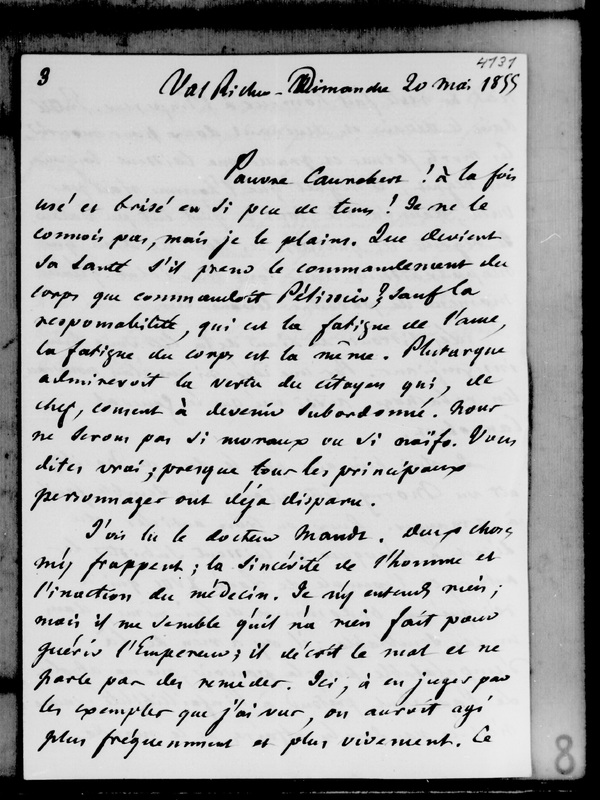 3
4131
Val Richer - Dimanche 20 mai 1855
Pauvre Canrobert ! à la fois
usé et brisé en si peu de tems ! Je ne le
connois pas, mais je le plains. Que devient
sa santé s'il prend le commandement du
corps que commandoit Pélissier ? Sauf la
responsabilité, qui est la fatigue de l'ame,
la fatigue du corps est la même. Plutarque
admireroit la vertu du citoyen qui, de
chef, consent à devenir subordonné. Nous
ne serons pas si moraux ou si naïfs. Vous
dites vrai ; presque tous les principaux
personnages ont déja disparu.
J'ois lu le docteur Mandt. Deux choses
m'y frappent ; la sincérité de l'homme et
l'inaction du médecin. Je n'y entends rien ;
mais il me semble qu'il n'a rien fait pour
guérir l'Empereur ; il décrit le mal et ne
parle pas des remèdes. Ici, à en juger par
les exemples que j'ai vus, on auroit agi
plus fréquemment et plus vivement. Ce
8